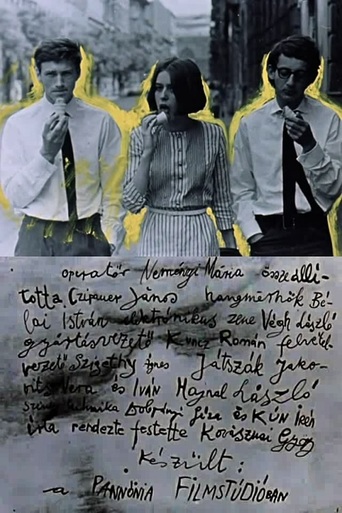 operatőr Neményi Mária összeállí-
totta Czipauer János hangmérnök Bé-
lai István elektronikus zene Végh László
gyártásvezető Kunz Román felvétel-
vezető Szigethy Ágnes Játszák Jako-
vits Vera és IVÁN Hajnal László
technika Dobrányi Géza és KÚN Irén
írta rendezte festette Kovásznai György
Készült:
a PANNÓNIA FILMSTÚDIÓBAN